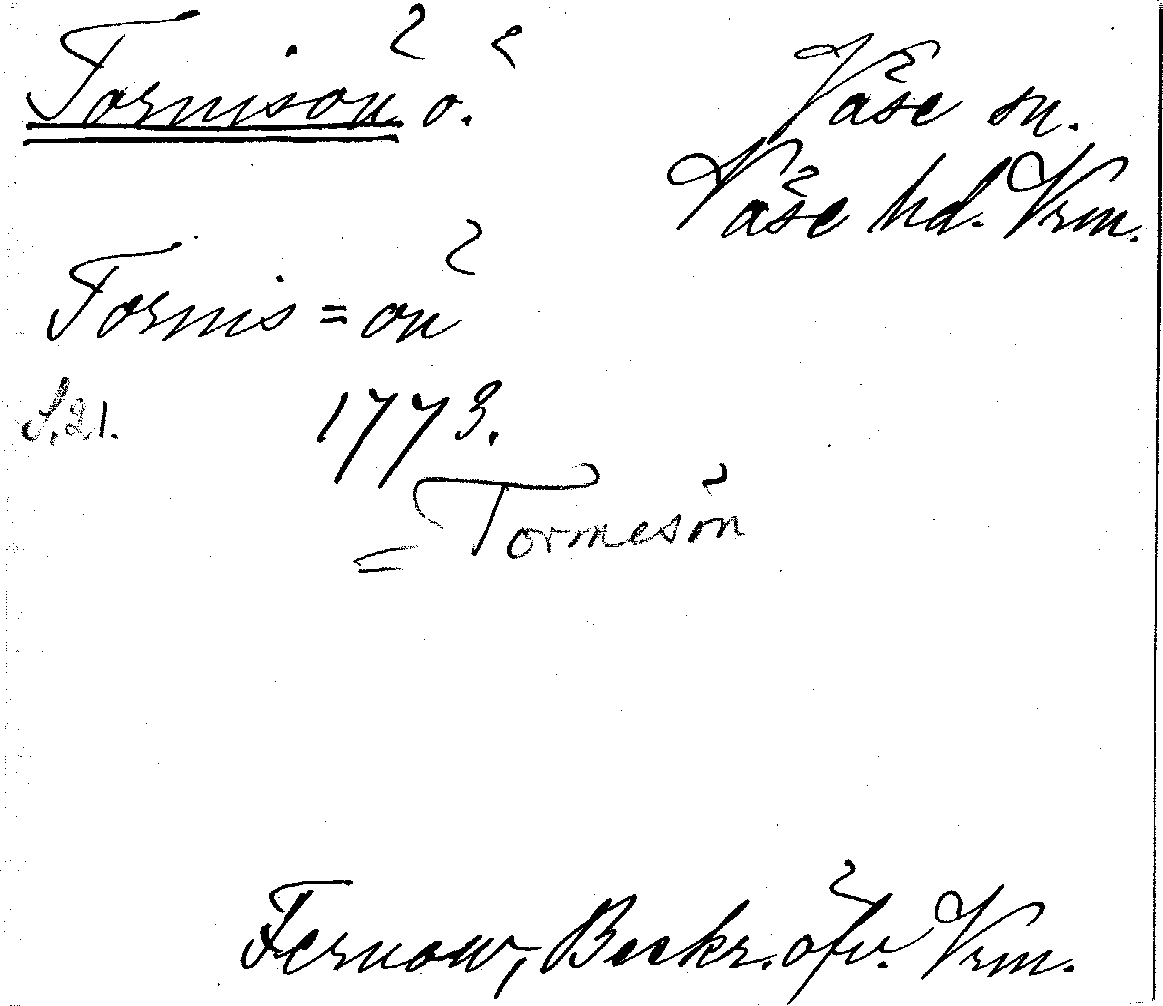 Tornisön ö. Väse sn.
Väse hd. Vrm.
Tornis=ön
S. 21. 1773.
= Tormesön
Fernow, Beskr. öfv. Vrm.